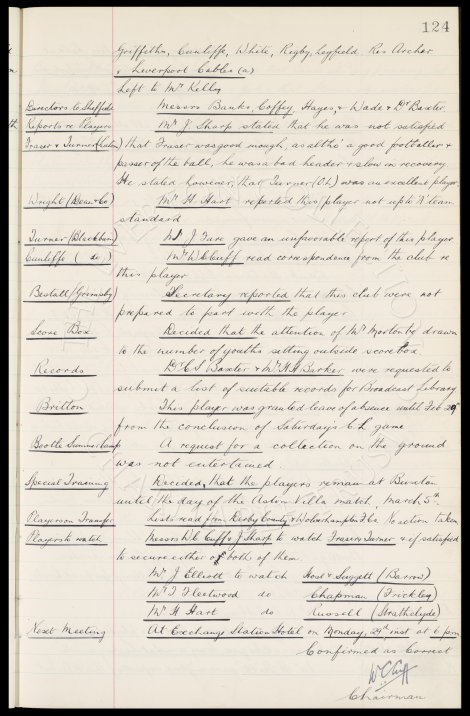 124
Griffiths, Cunliffe, White, Rigby, Leyfield. Res Archer
v Liverpool Cables (a)
Left to Mr Kelly
Directors to Sheffield Messrs Banks, Coffey, Hayes, & Wade & Dr Baxter.
Reports re Players Mr J. Sharp stated that he was not satisfied
Fraser & Turner that Fraser was good enough, as altho' a good footballer &
passer of the ball, he was a bad header & slow in recovery
He stated however, that Turner was an excellent player
Wright (Dean & Co) Mr H Hart reported this player not up to 'A' team
standard
Turner (Blackburn) Mr J Fare gave an unfavorable report of this player
Cunliffe ( do ) Mr W C Cuff read correspondence from the club re
this player
Bestall (Grimsby) Secretary reported that this club were not
prepared to part with the player
Score Box Decided that the attention of Mr Morton be drawn
to the number of youths sitting outside score box
Records Dr C S Baxter & Mr Barker were requested to
submit a list of suitable records for Broadcast Library
Britton This player was granted leave of absence until Feb 29th
from the conclusion of Saturday's C.L. game
Bootle Summer Camp A request for a collection on the ground
was not entertained
Special Training Decided that the players remain at Buxton
until the day of the Aston Villa match, March 5th.
Players on Transfer Lists read from Derby County & Wolverhampton FCs No action taken
Players to watch Messrs W C Cuff & J Sharp to watch Fraser & Turner & if satisfied
to secure either or both of them.
Mr J Elliott to watch Hose & Suggett (Barrow)
Mr T Fleetwood do Chapman (Frickley)
Mr H Hart do Russell (Strathclyde)
Next Meeting At Exchange Station Hotel on Monday, 24th inst at 6 pm
Confirmed as Correct
W C Cuff
Chairman